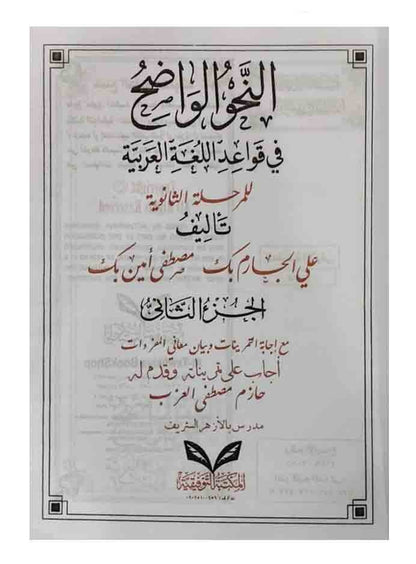 النَّحْوُ الوَاضِحُ
في قَوَاعِدِ اللُّغَةِ العَرَبِيَّة
للمرحلة الثانوية
تأليفُ
علي الجارم بك مصطفى أمين بك
الجُزءُ الثَّانِي
مع إجابة التمرينات وبيان معاني المفردات
أجاب على تمريناته وقدم له
حازم مصطفى العزب
مدرس بالأزهر الشريف
المكتبة التوفيقية